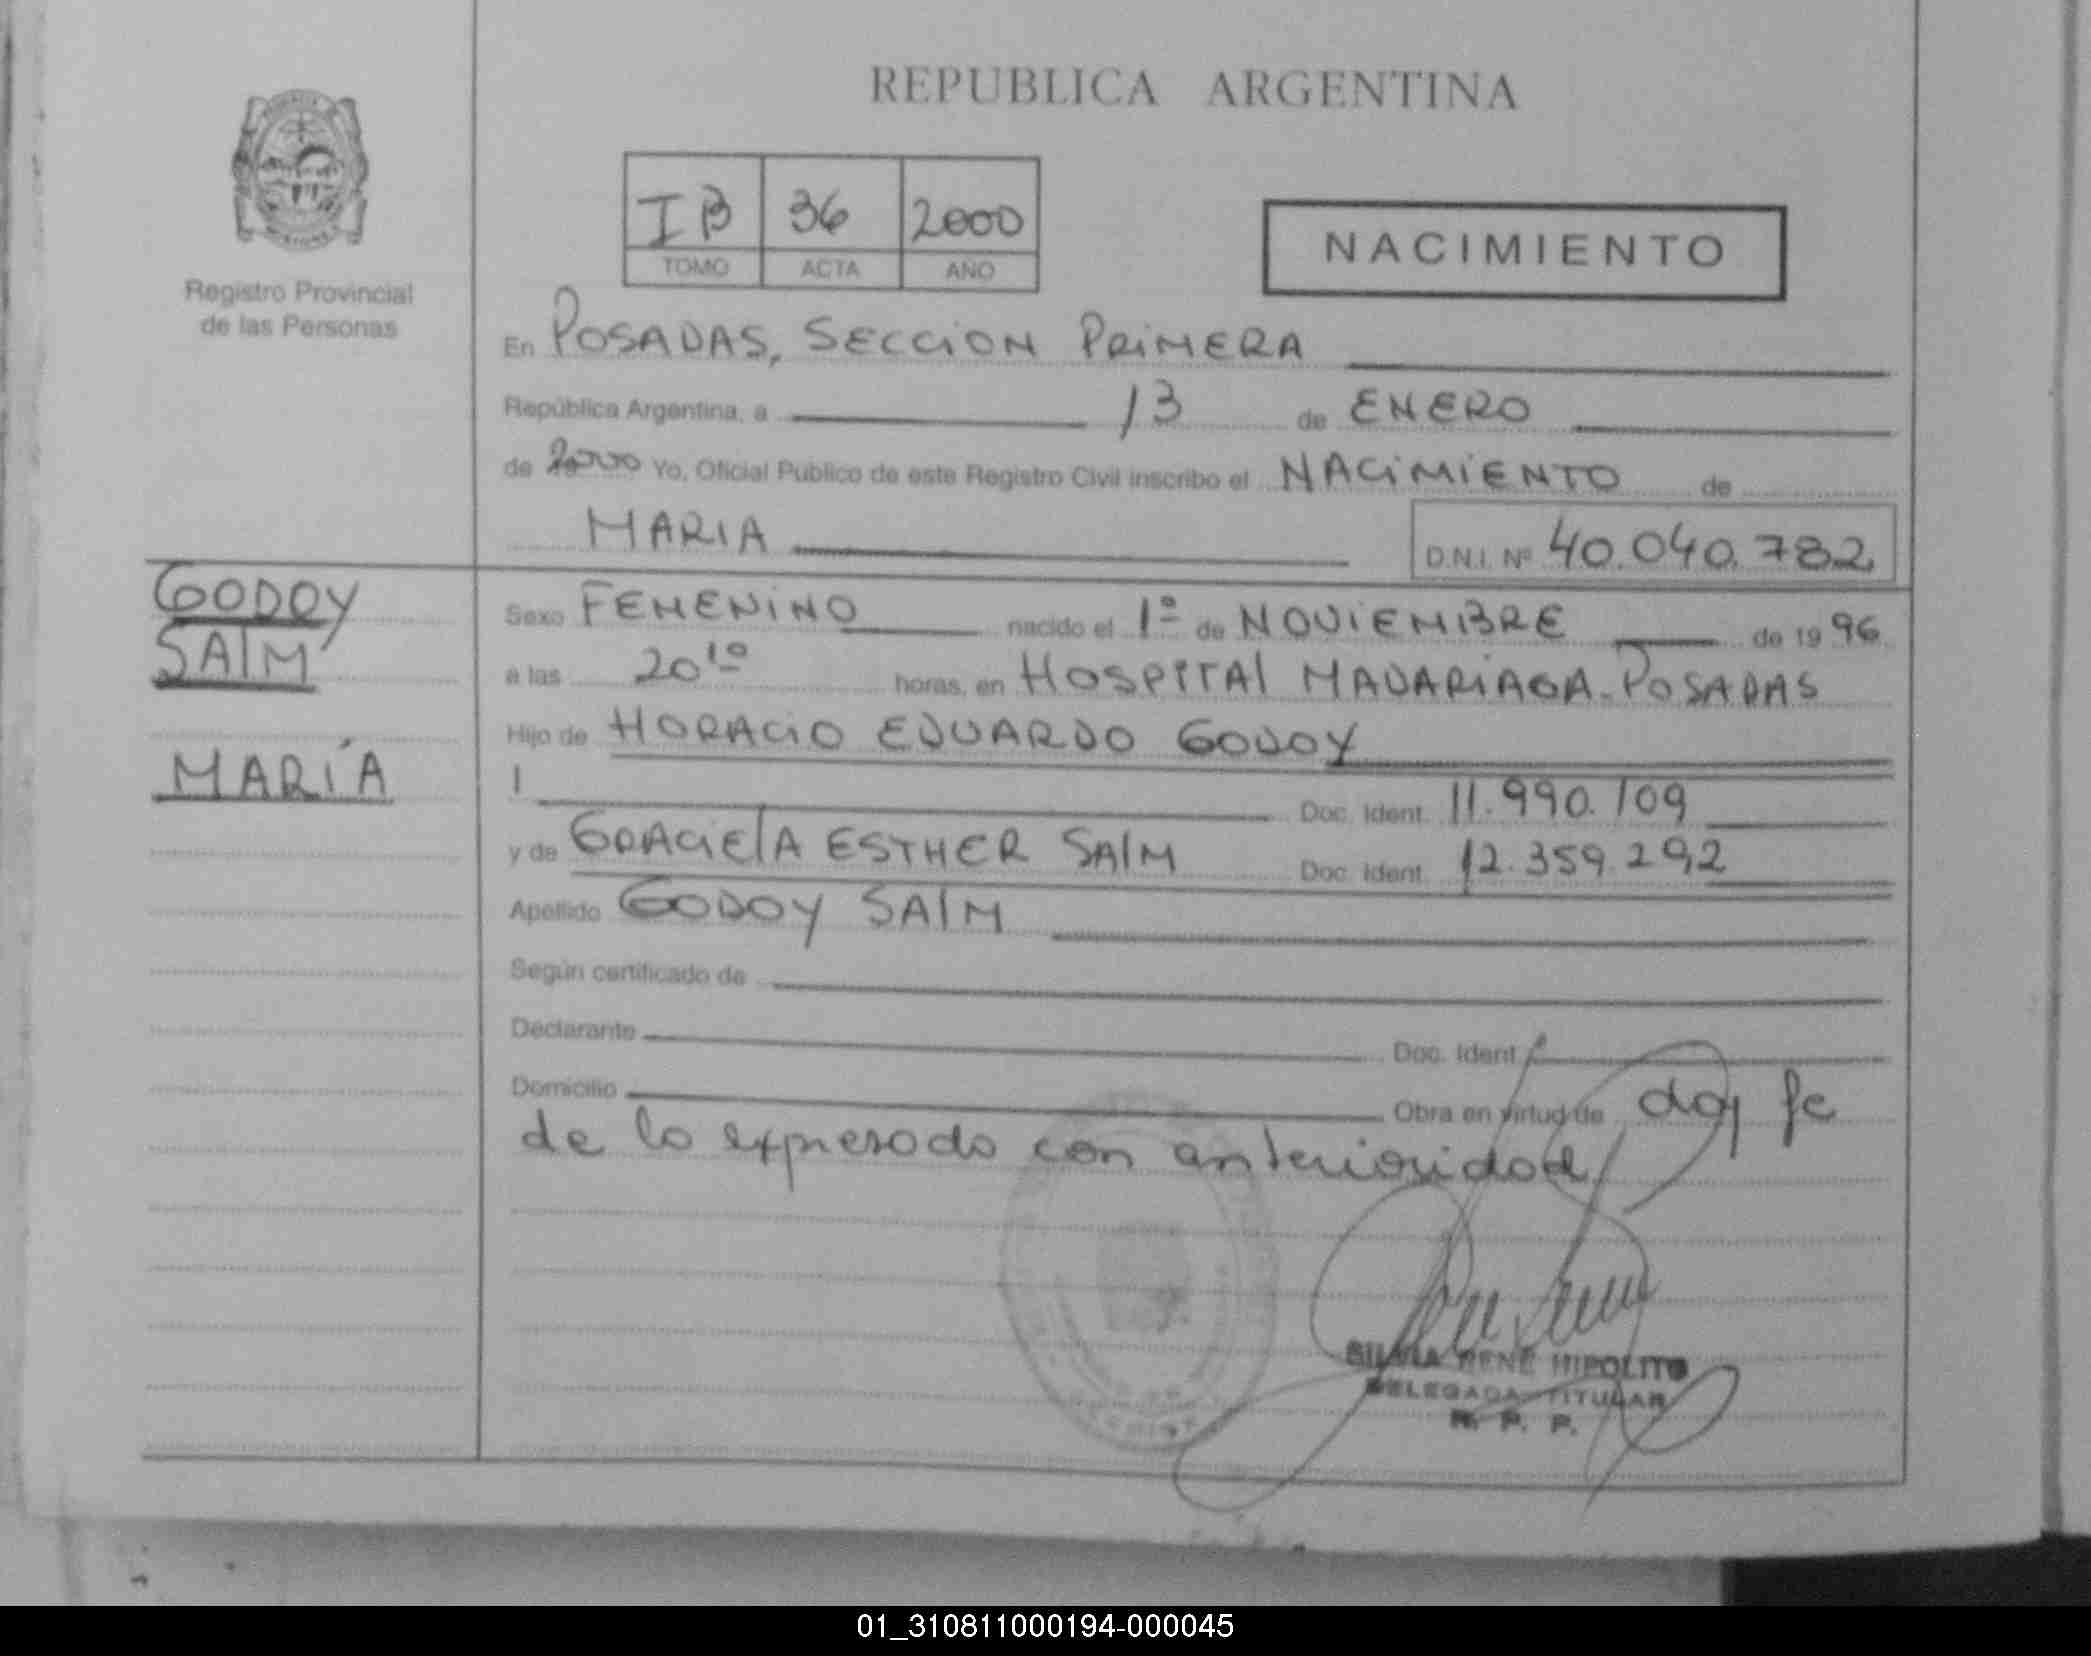 REPUBLICA ARGENTINA
IB 36 2000
TOMO ACTA AÑO
NACIMIENTO
Registro Provincial
de las Personas
En POSADAS, SECCION PRIMERA
República Argentina, a 13 de ENERO
de 2000 Yo, Oficial Público de este Registro Civil inscribo el NACIMIENTO de
MARIA D.N.I. Nº 40.040.782
GODOY
SAIM
MARÍA
Sexo FEMENINO nacido el 1º de NOVIEMBRE de 1996
a las 20 10 horas, en HOSPITAL MADARIAGA - POSADAS
Hijo de HORACIO EDUARDO GODOY
Doc. Ident. 11.990.109
y de GRACIELA ESTHER SAIM Doc. Ident. 12.359.292
Apellido GODOY SAIM
Según certificado de
Declarante Doc. Ident.
Domicilio Obra en virtud de doy fe
de lo expresado con anterioridad
SILVIA RENE HIPOLITO
DELEGADA TITULAR
R. P. P.
01_310811000194-000045